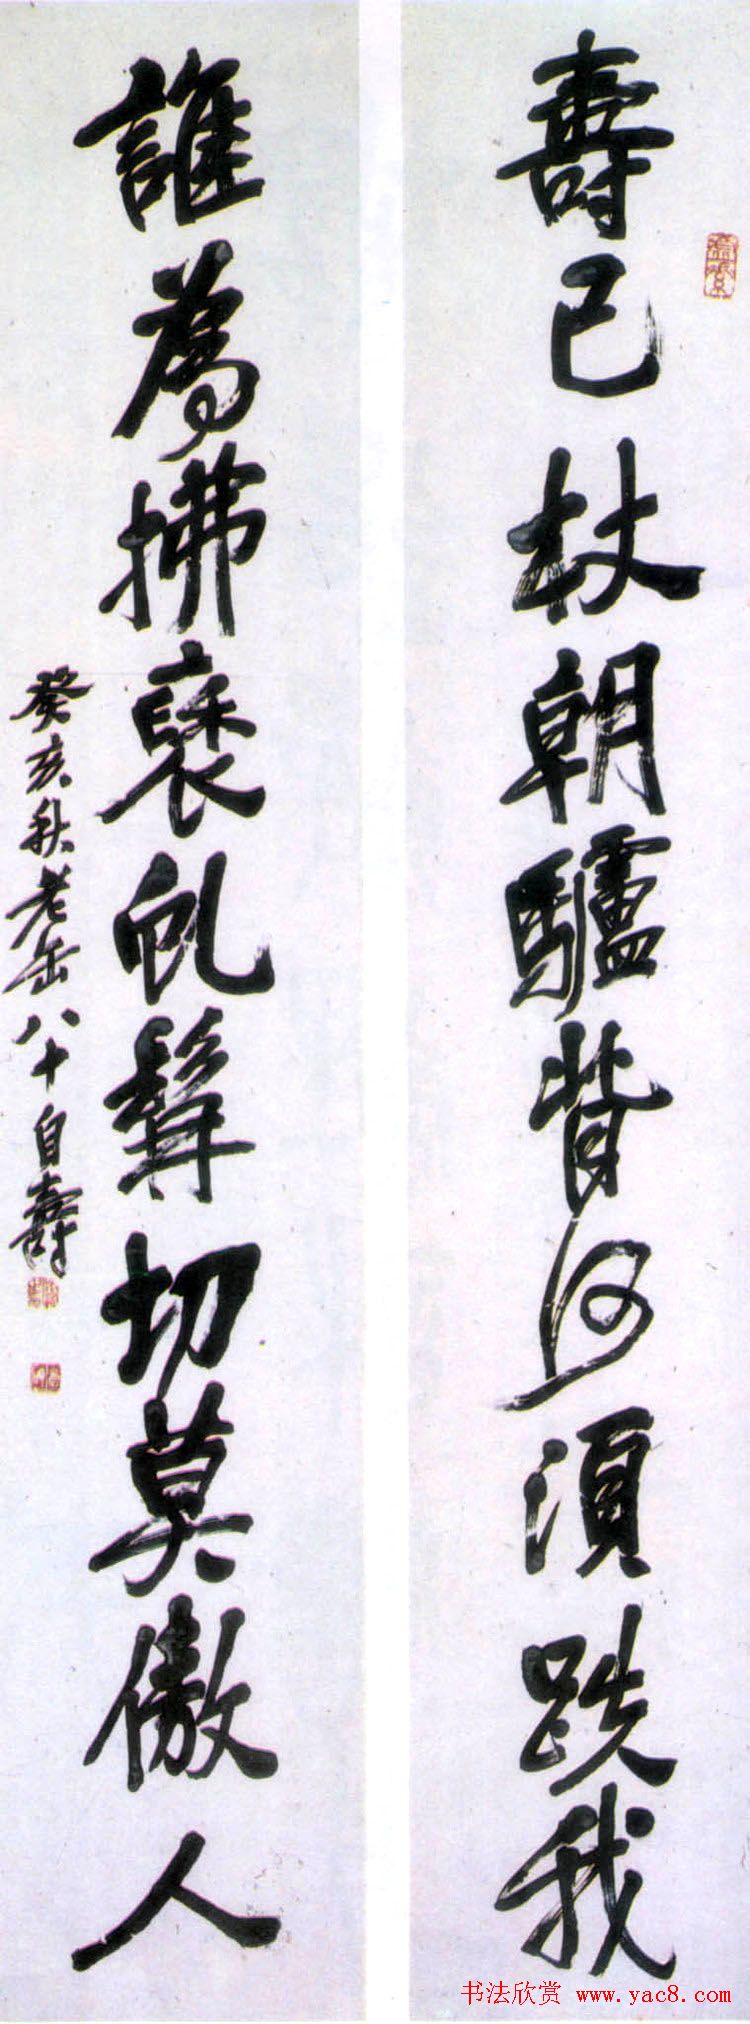 壽已杖朝驢背何須跌我
誰為拂褎虬髯切莫傲人
癸亥秋老缶八十自壽
书法欣赏 www.yac8.com